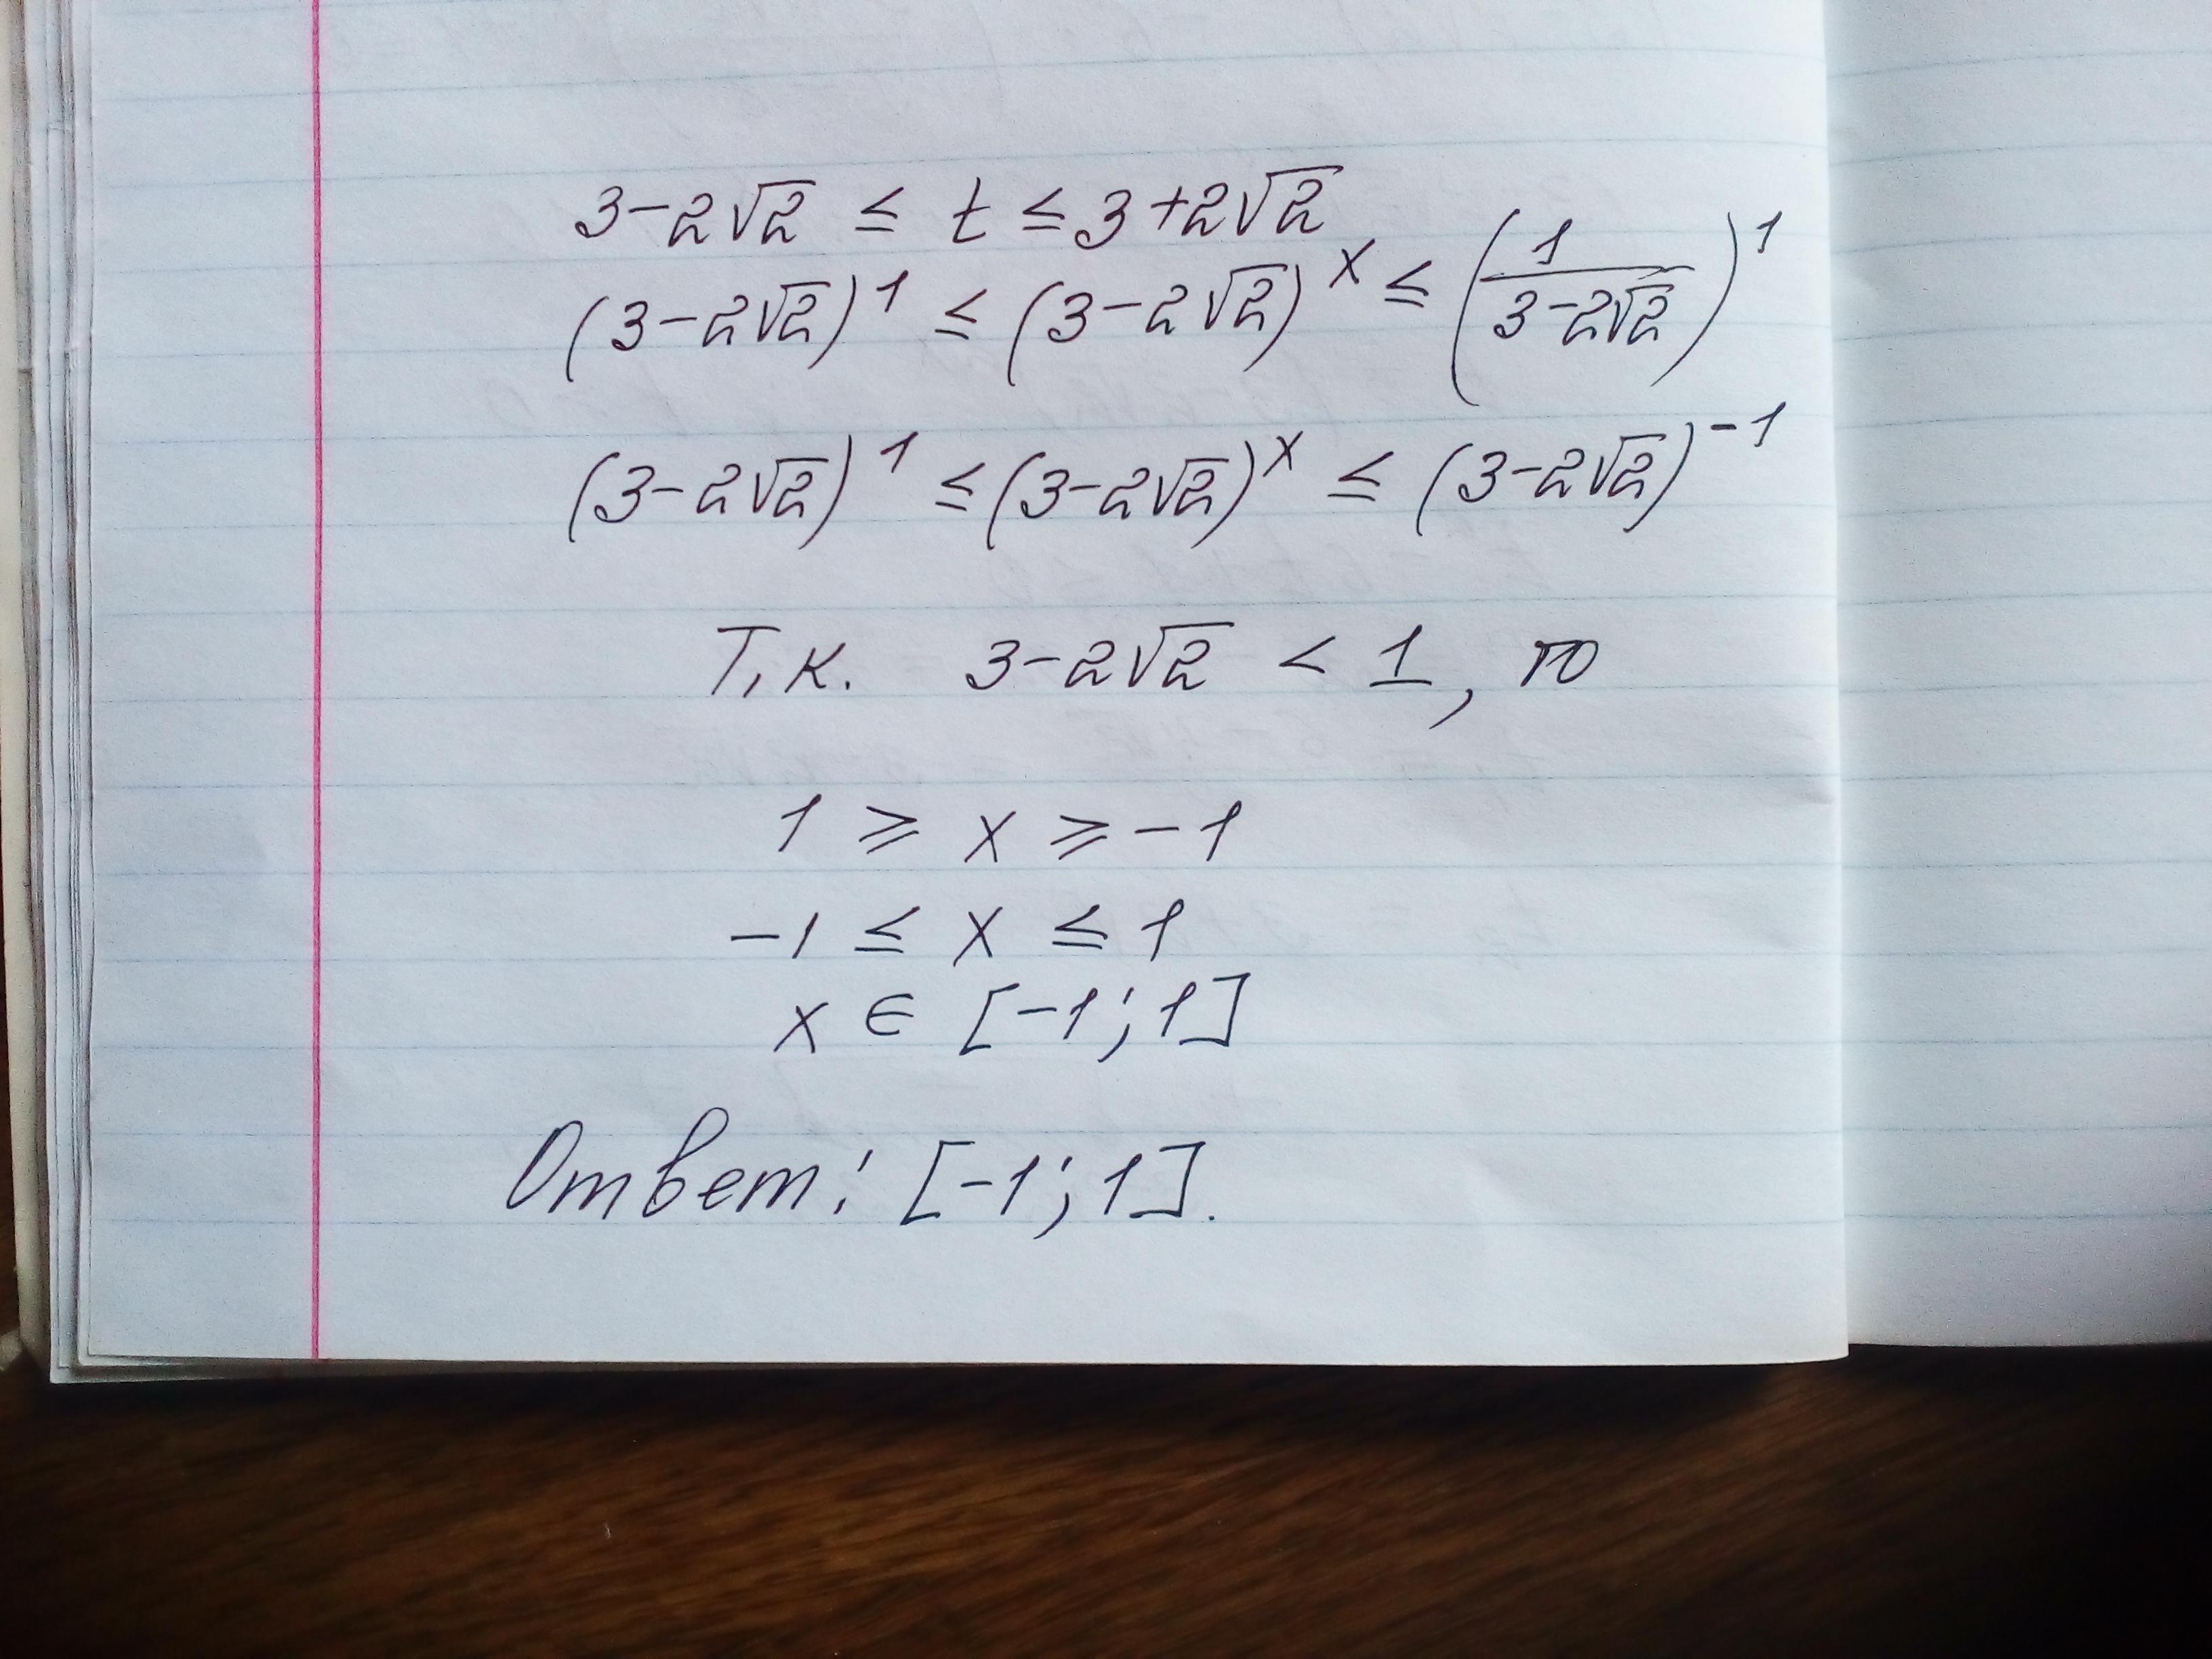 3-2√2 ≤ t ≤ 3+2√2
(3-2√2)¹ ≤ (3-2√2)ˣ ≤ (1/(3-2√2))¹
(3-2√2)¹ ≤ (3-2√2)ˣ ≤ (3-2√2)⁻¹
Т.к. 3-2√2 < 1, то
1 ⩾ x ⩾ -1
-1 ≤ x ≤ 1
x ∈ [-1; 1]
Ответ: [-1; 1].